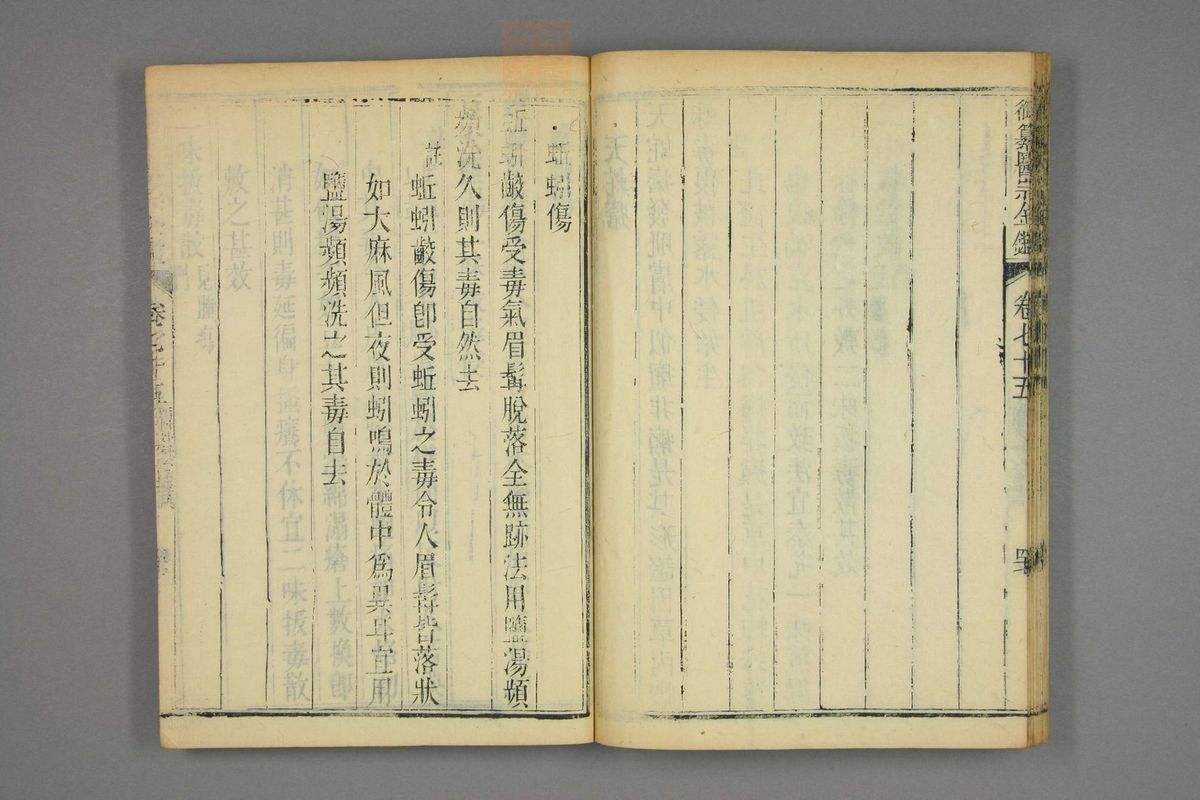 御纂醫宗金鑑 卷七十五
蚯蚓傷
蚯蚓齩傷受毒氣眉髯脫落全無跡法用鹽湯頻
頻洗久則其毒自然去
註蚯蚓齩傷卽受蚯蚓之毒令人眉髯皆落狀
如大麻風但夜則蚓鳴於體中爲異耳宜用
鹽湯頻頻洗之其毒自去
卷七十五